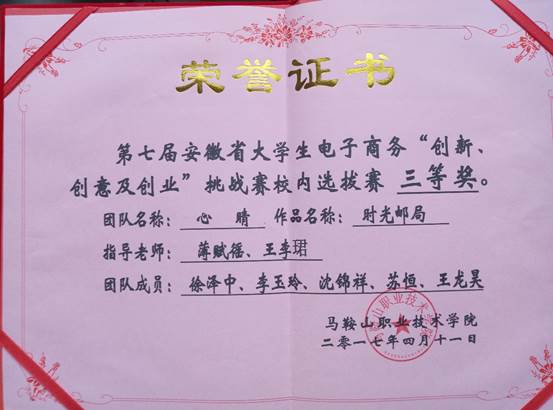 荣誉证书
第七届安徽省大学生电子商务“创新、
创意及创业”挑战赛校内选拔赛 三等奖。
团队名称: 心 晴 作品名称: 时光邮局
指导老师: 薄赋徭、王李珺
团队成员: 徐泽中、李玉玲、沈锦祥、苏恒、王龙昊
马鞍山职业技术学院
二零一七年四月十一日